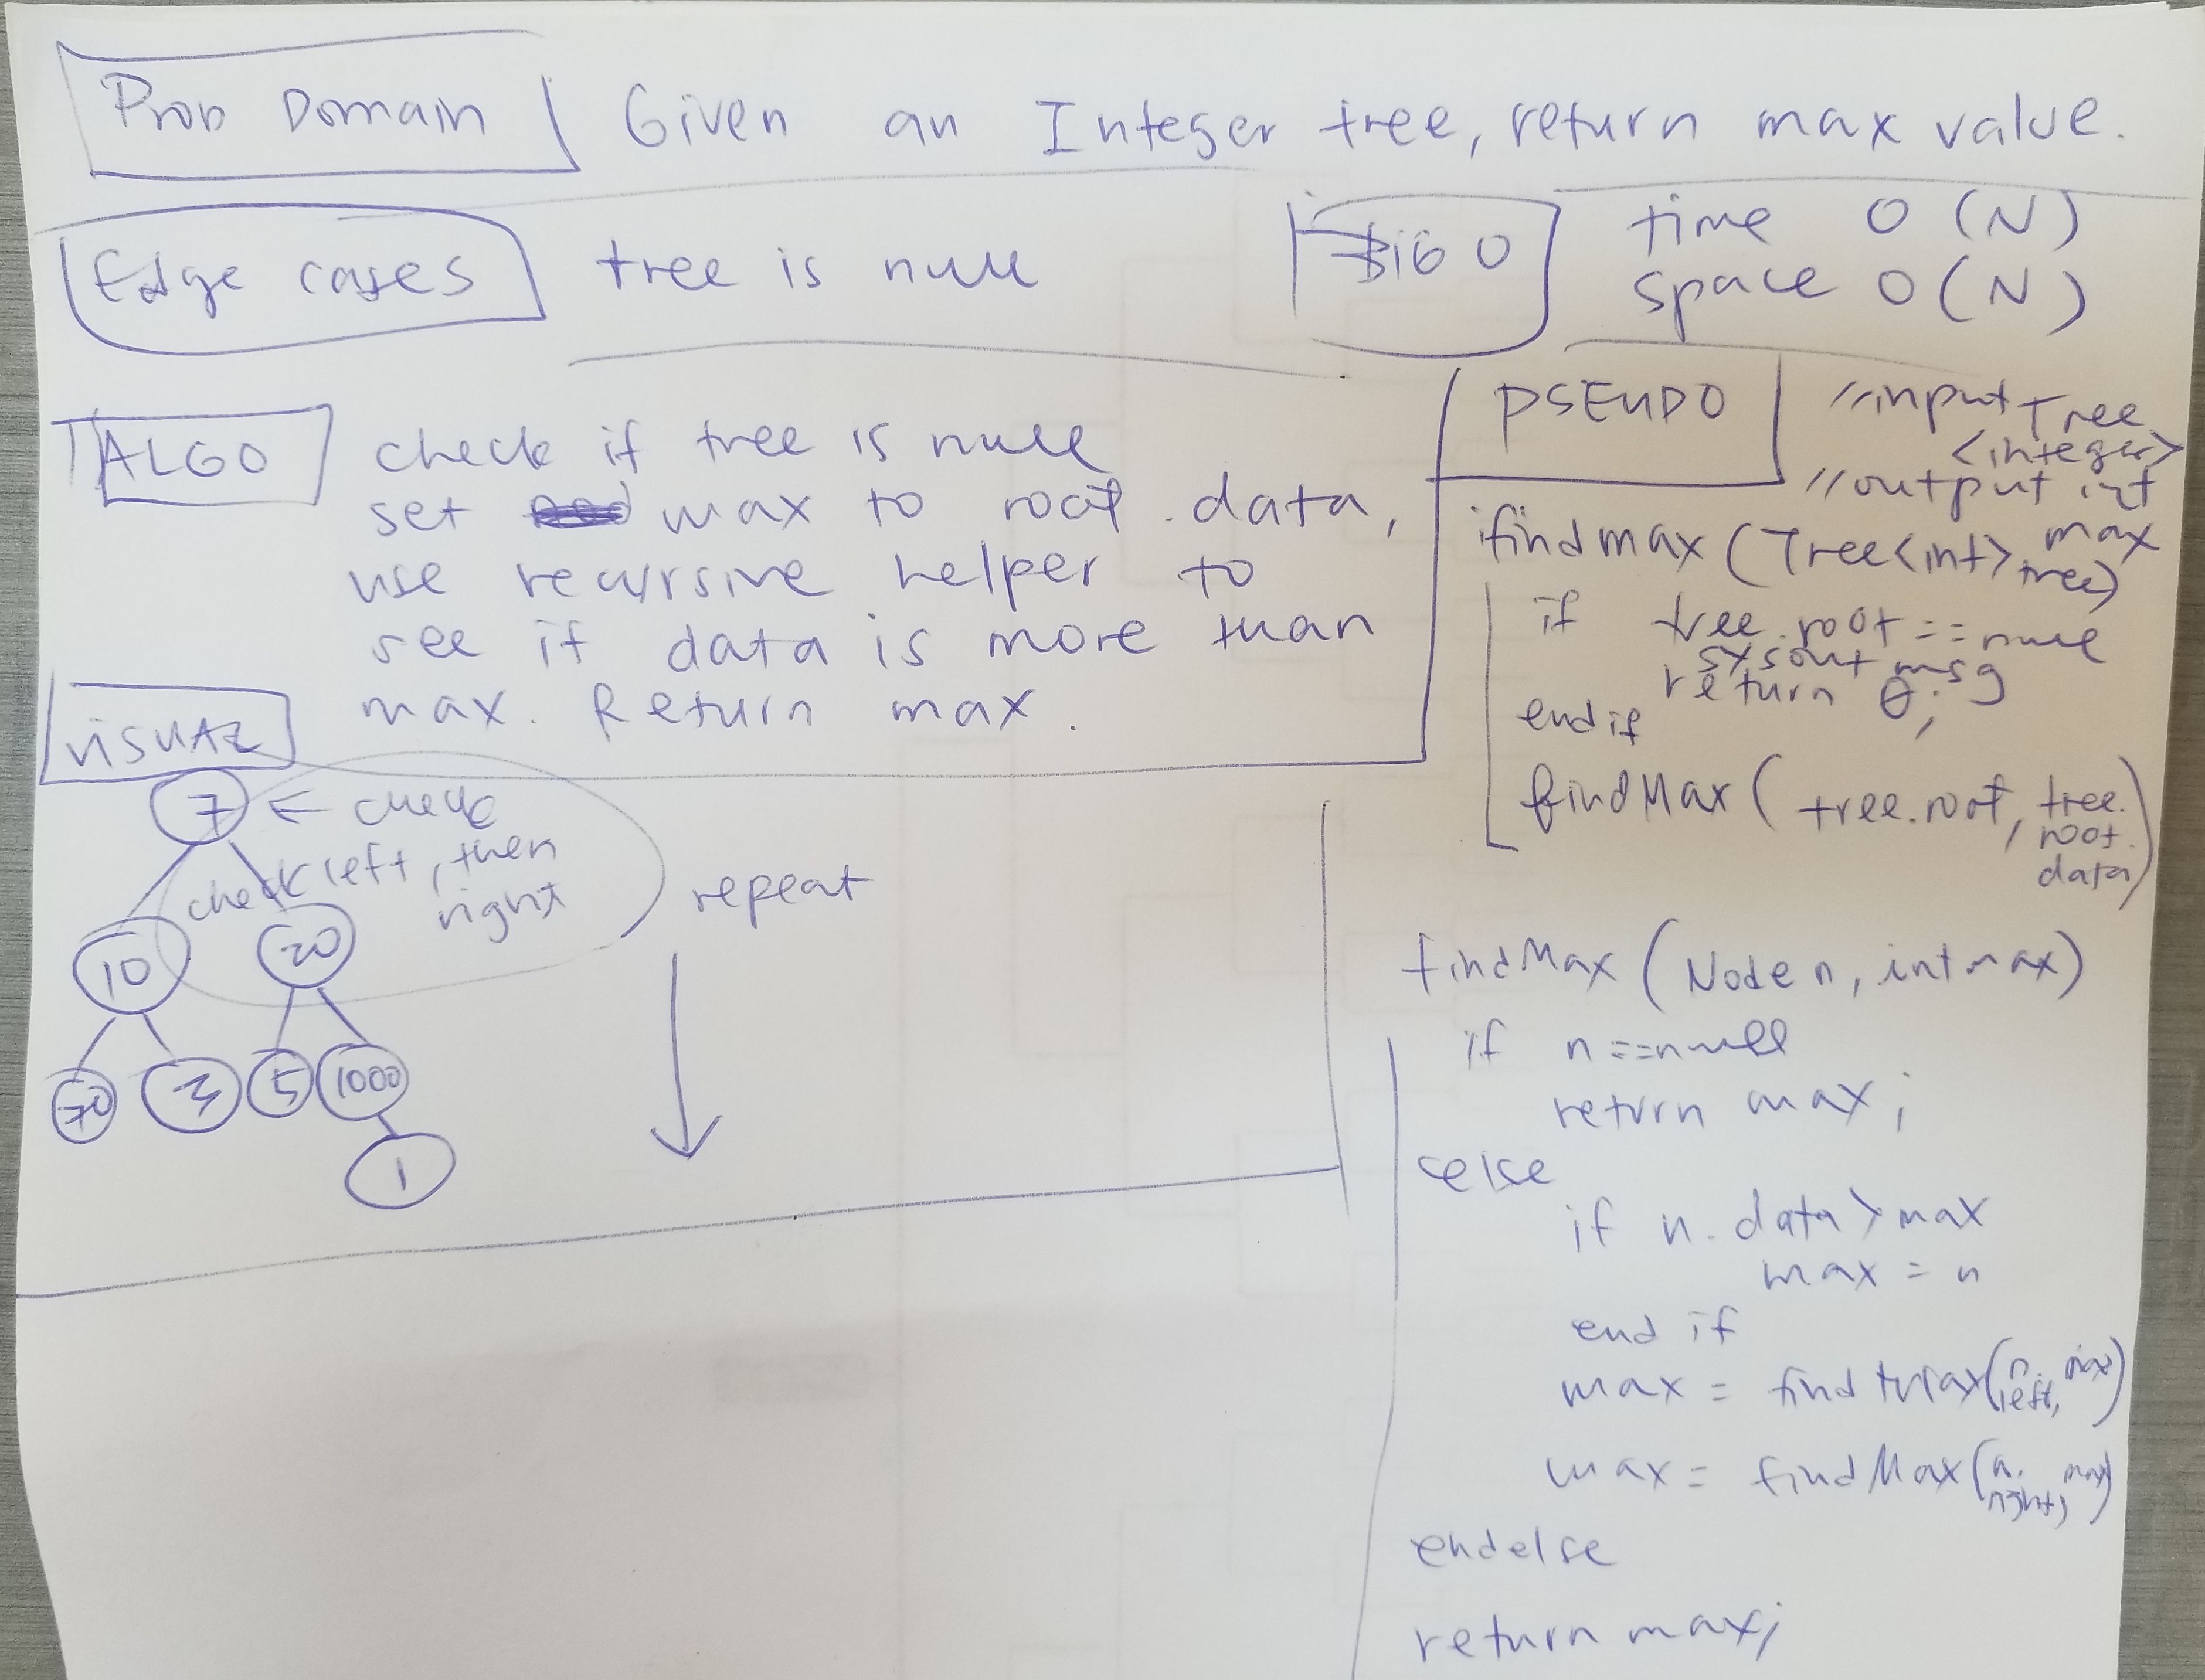 Prob Domain Given an Integer tree, return max value.
Edge cases tree is null
BIG O time O(N)
space O(N)
ALGO check if tree is null
set max to root data,
use recursive helper to
see if data is more than
max. Return max.
VISUAL
7 ← check
check left, then
right
repeat
10 20
3 5 1000
1
PSEUDO //input Tree
<integer>
//output int
max
findmax(Tree<int>
tree)
if tree.root == null
sysout msg
return 0;
end if
findMax(tree.root, tree.
root.
data)
findMax(Node n, int max)
if n==null
return max;
else
if n.data > max
max = n
end if
max = findMax(n.left, max)
max = findMax(n.right, max)
endelse
return max;